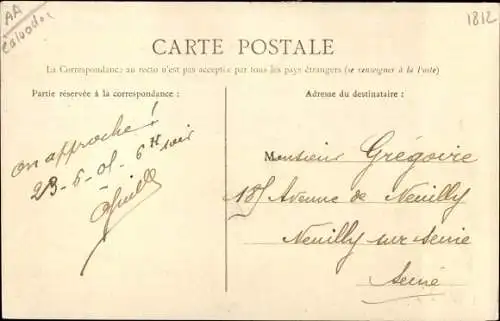 AA
Calvados
1812
CARTE POSTALE
La Correspondance au recto n'est pas acceptée par tous les pays étrangers (se renseigner à la Poste)
Partie réservée à la correspondance :
on approche !
23-6-05 6H soir
Adresse du destinataire :
Monsieur Grégoire
185 Avenue de Neuilly
Neuilly sur Seine
Seine